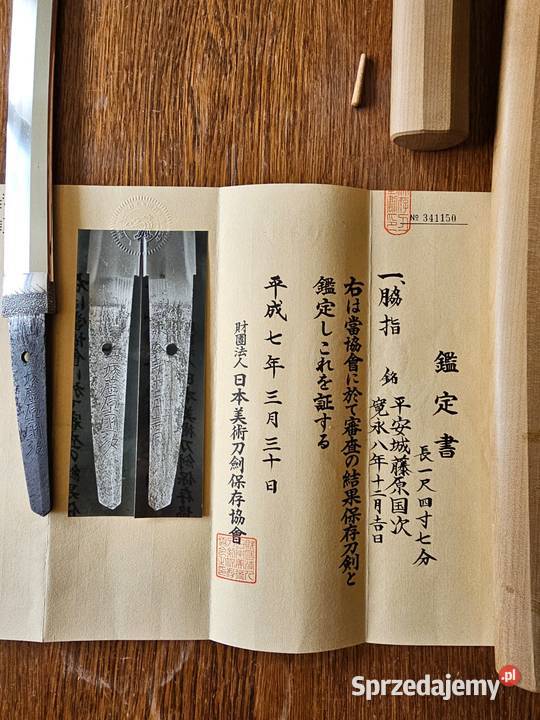 № 341150
鑑定書
一、脇指
長一尺四寸七分
銘 平安城藤原国次
寛永八年十二月吉日
右は當協會に於て審査の結果保存刀剣と
鑑定しこれを証する
平成七年三月三十日
財團法人 日本美術刀劍保存協會
Sprzedajemy.pl